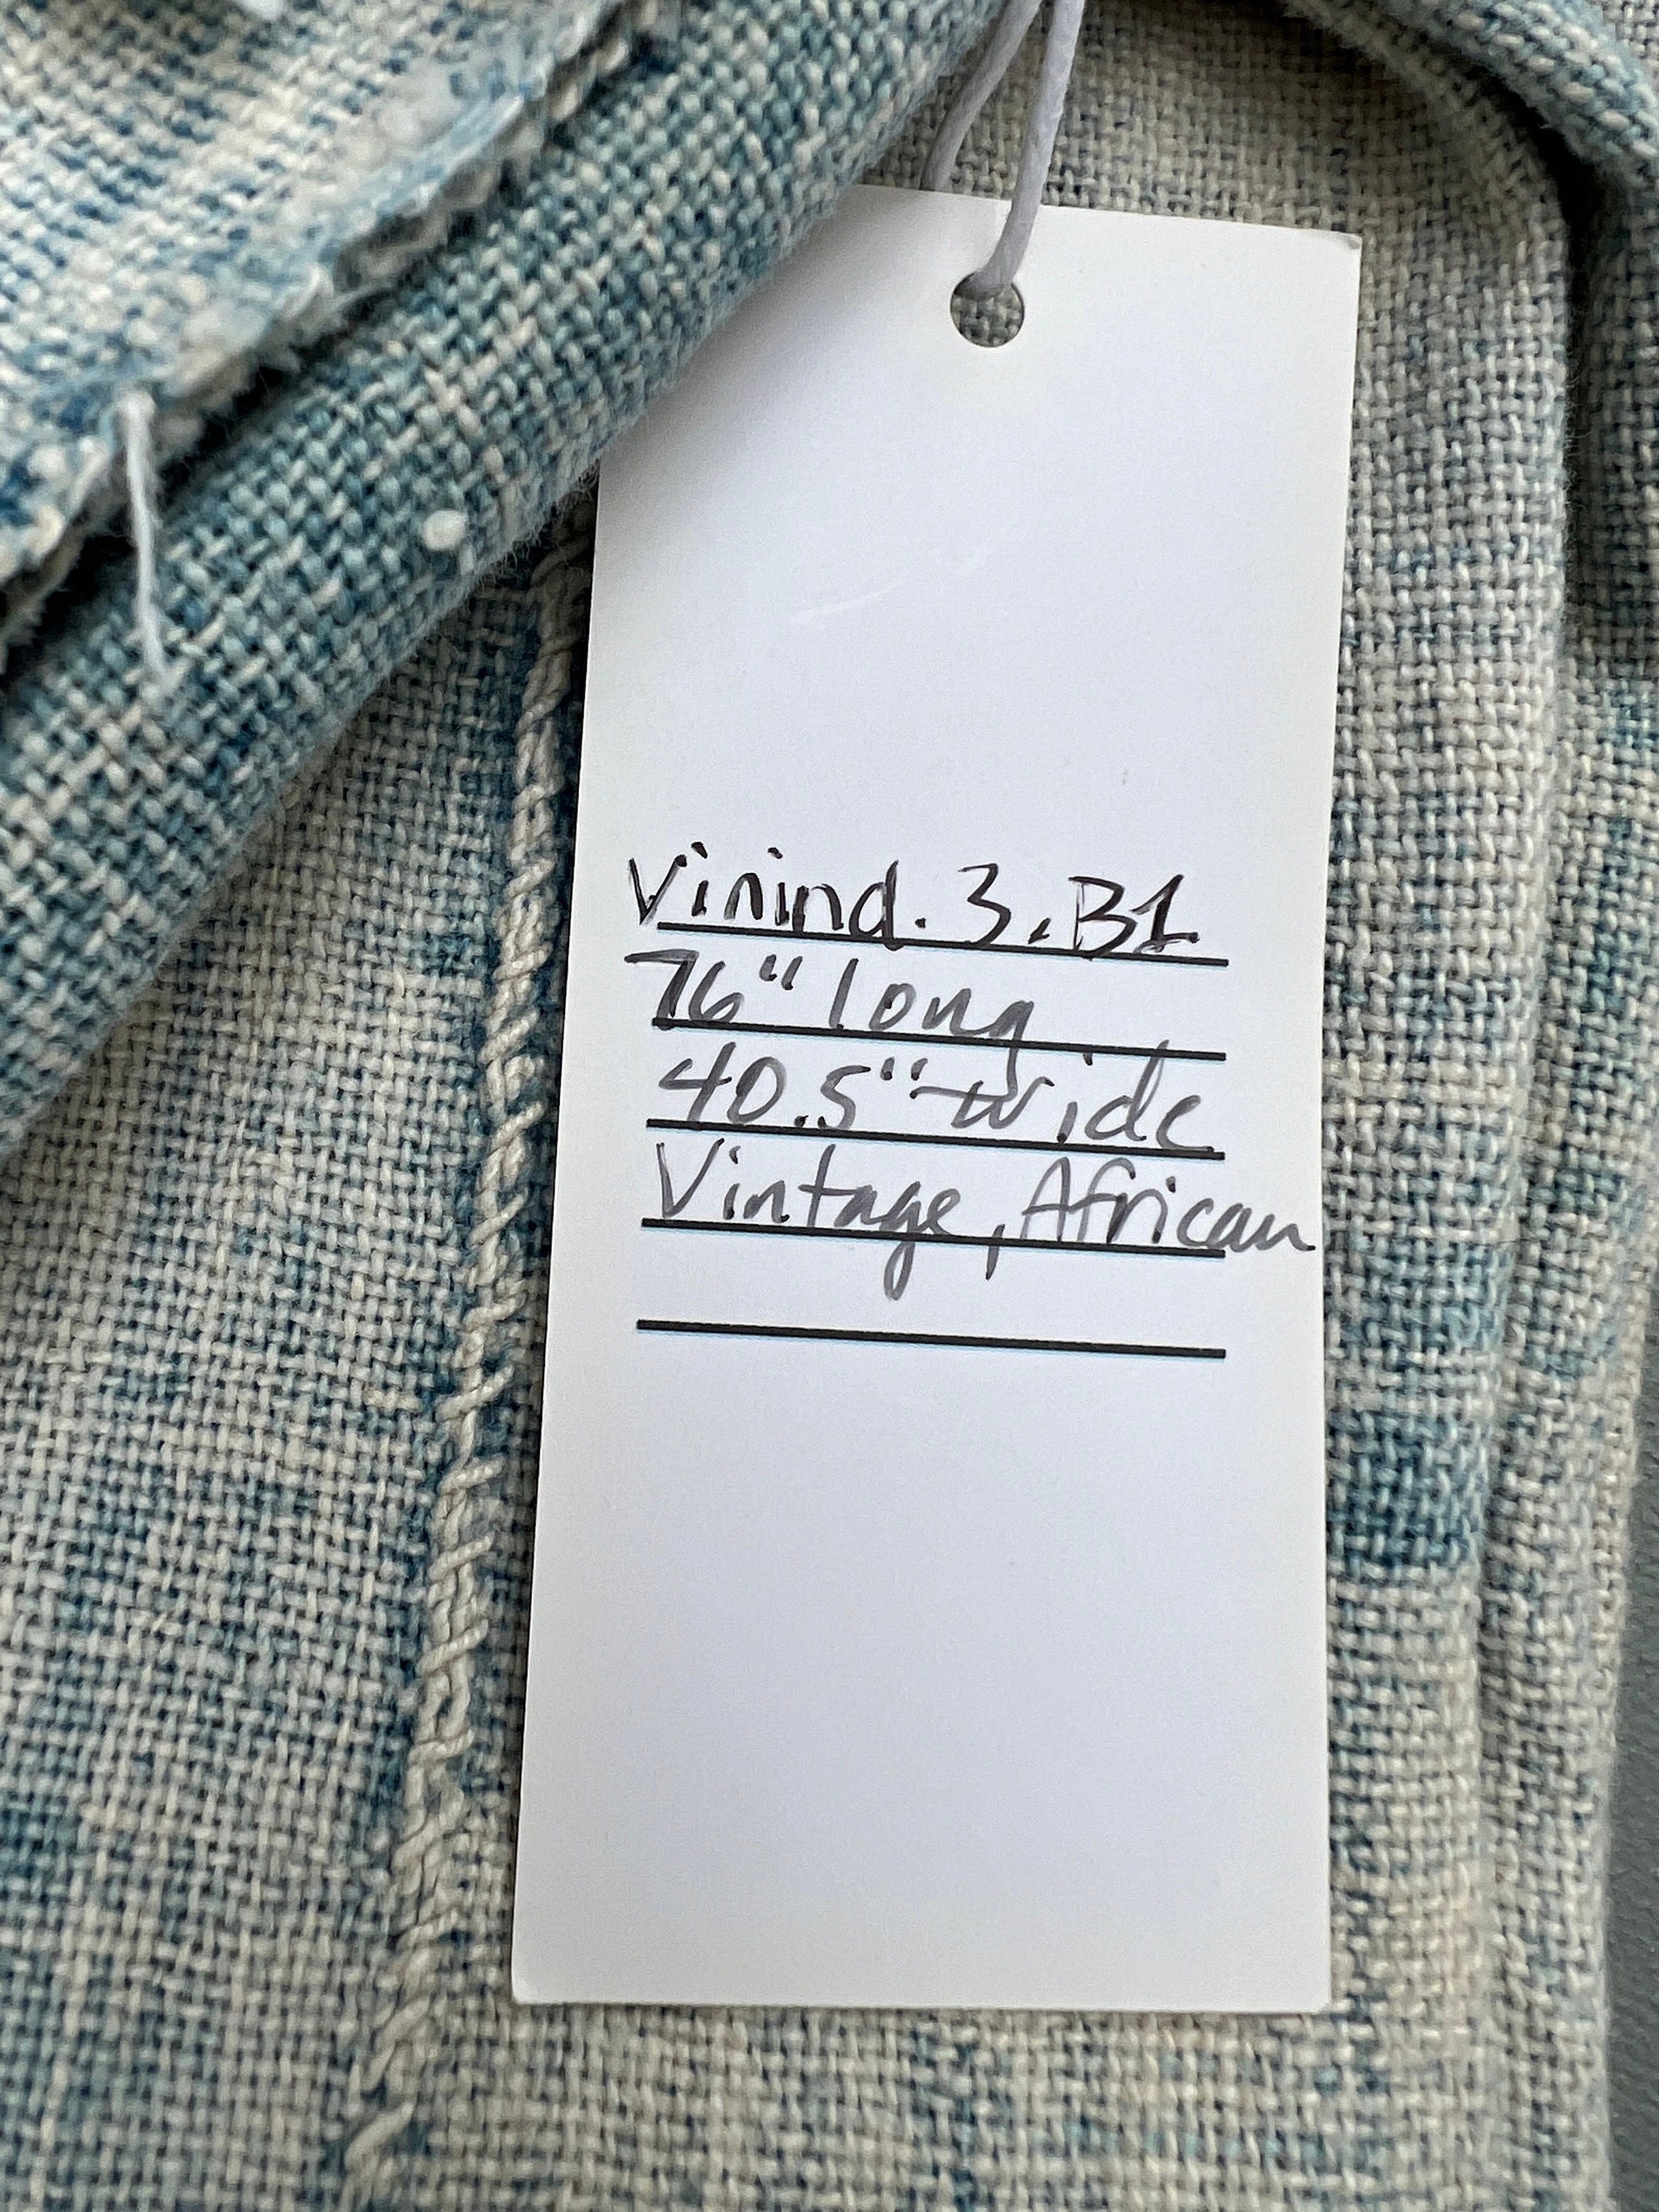 Vinind. 3. B1
76" long
40.5" wide
Vintage, African